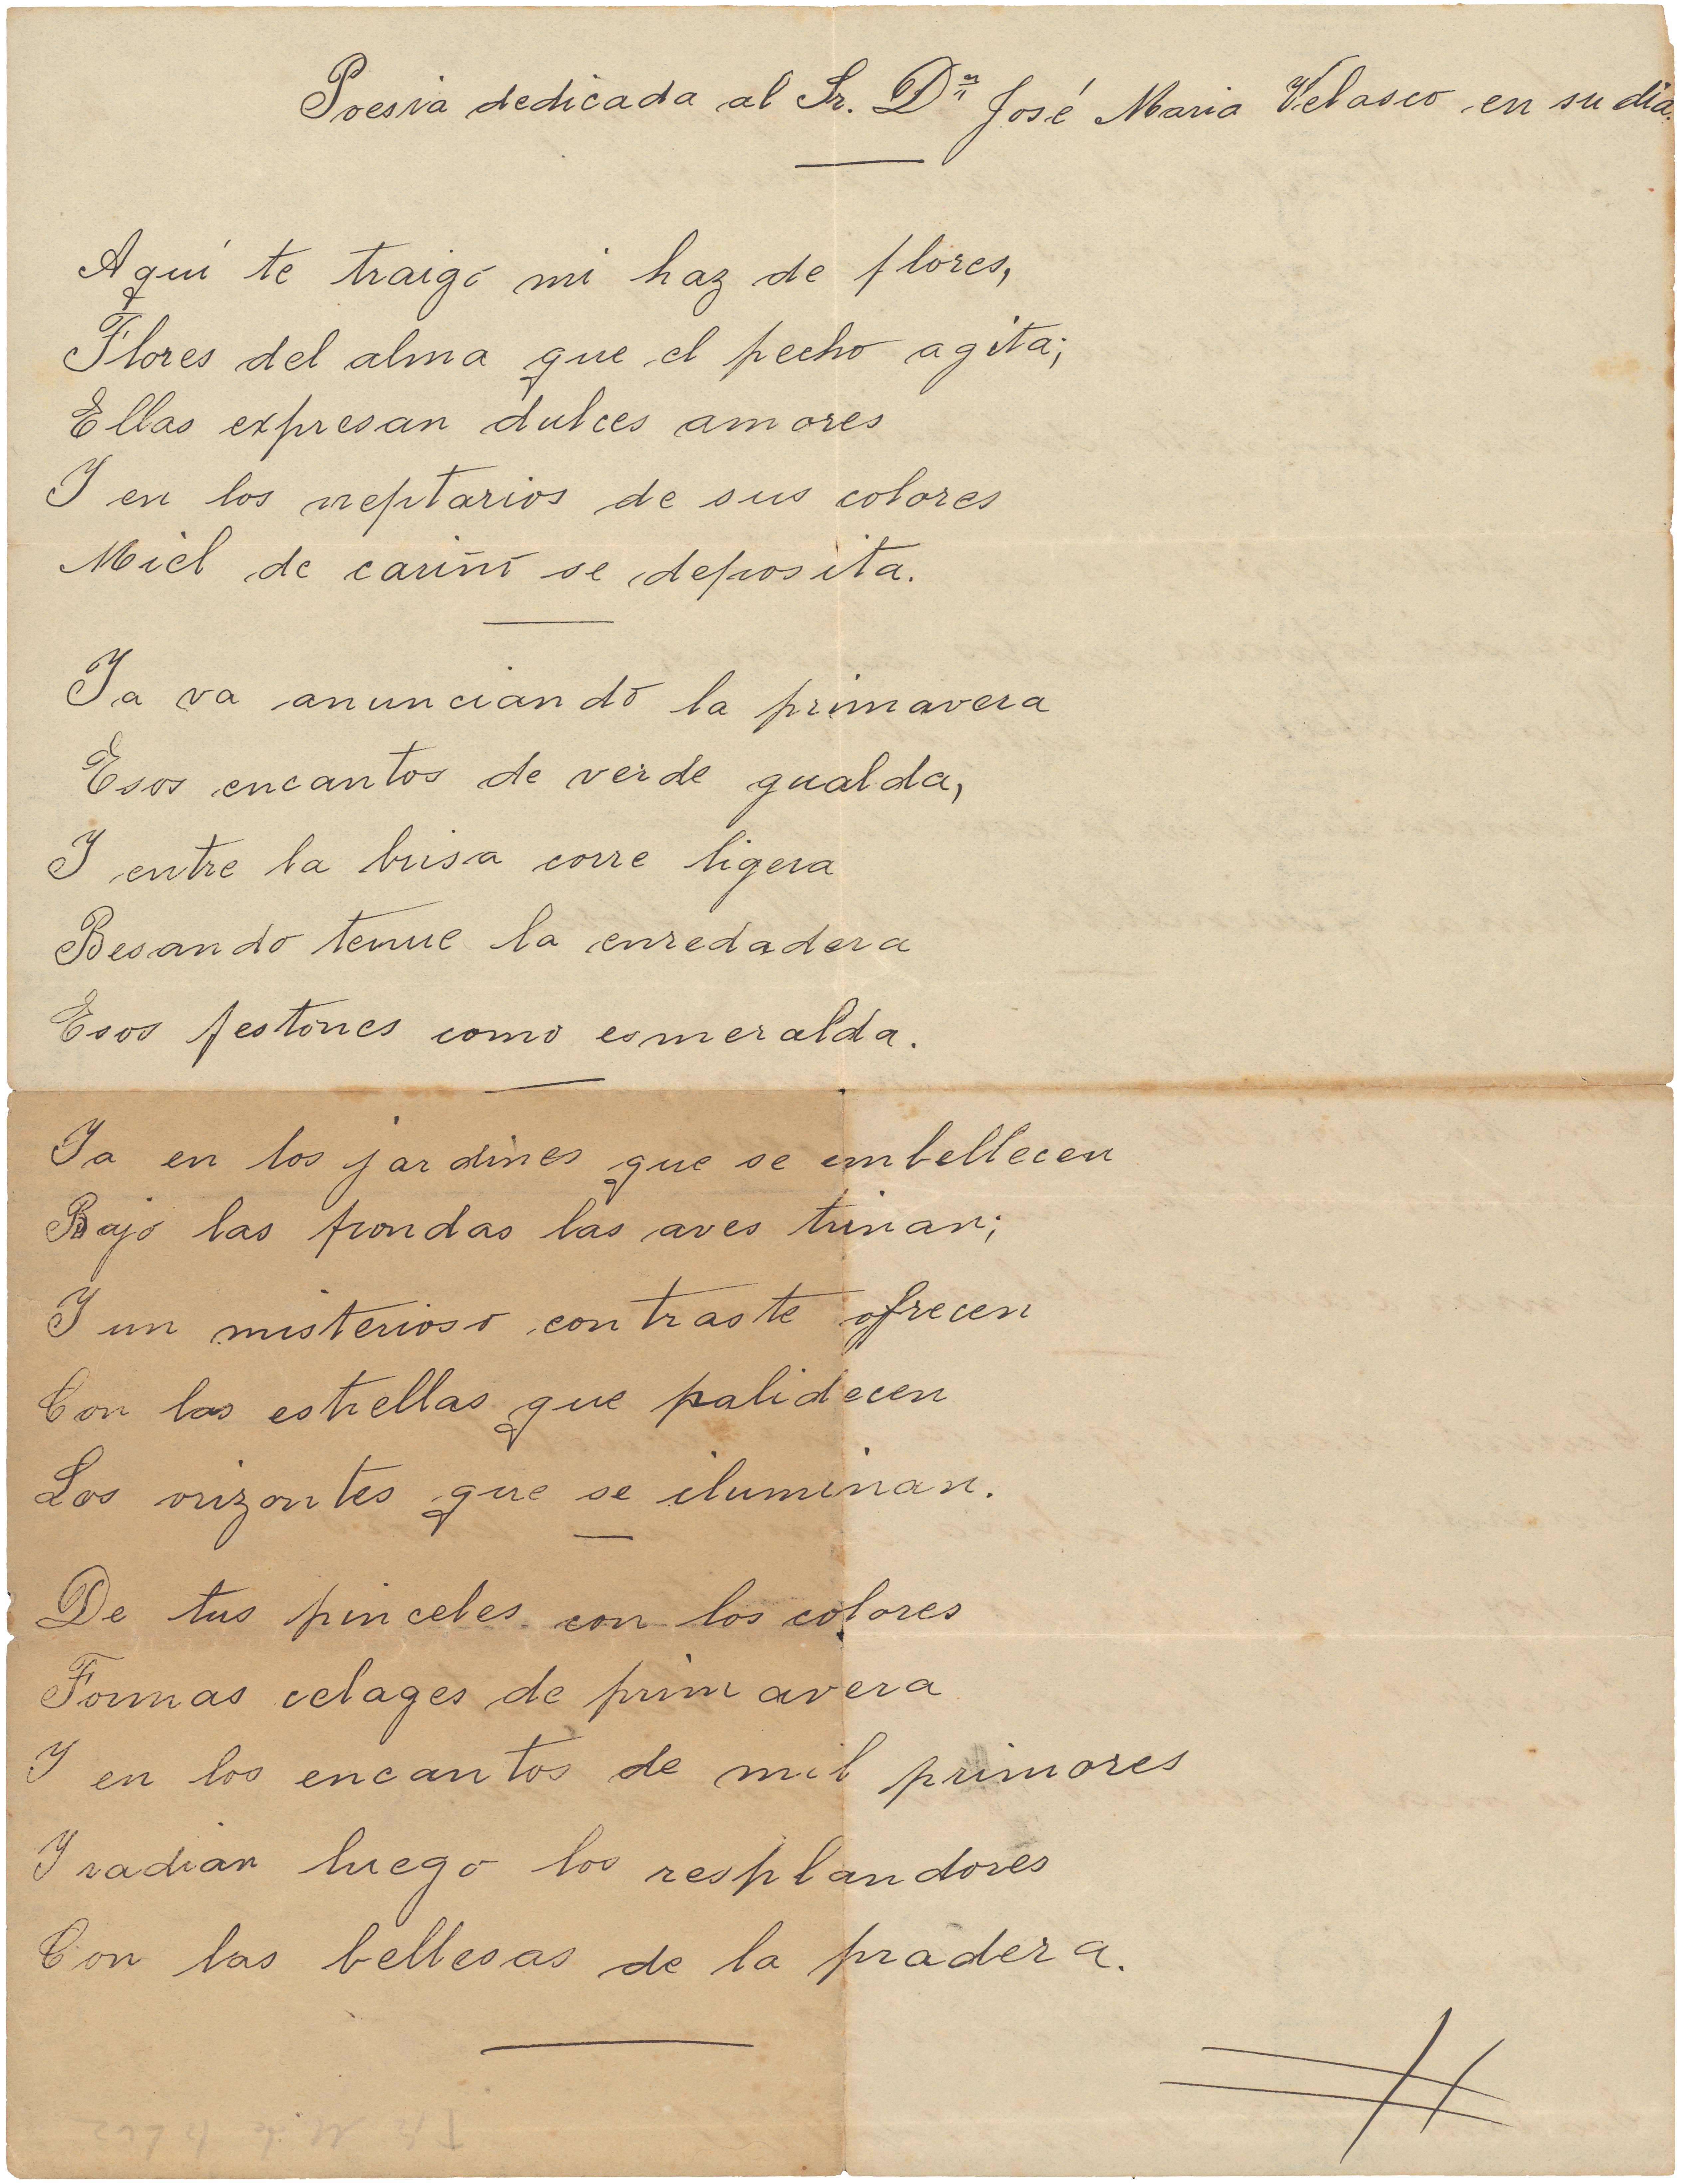 Poesia dedicada al Sr. Dn José Maria Velasco en su dia.
Aquí te traigo mi haz de flores,
Flores del alma que el pecho agita;
Ellas expresan dulces amores
Y en los neptarios de sus colores
Miel de cariño se deposita.
Ya va anunciando la primavera
Esos encantos de verde gualda,
Y entre la brisa corre ligera
Besando tenue la enredadera
Esos festones como esmeralda.
Ya en los jardines que se embellecen
Bajo las frondas las aves trinan;
Y un misterioso contraste ofrecen
Con las estrellas que palidecen
Los orizontes que se iluminan.
De tus pinceles con los colores
Formas celages de primavera
Y en los encantos de mil primores
Iradian luego los resplandores
Con las bellesas de la pradera.